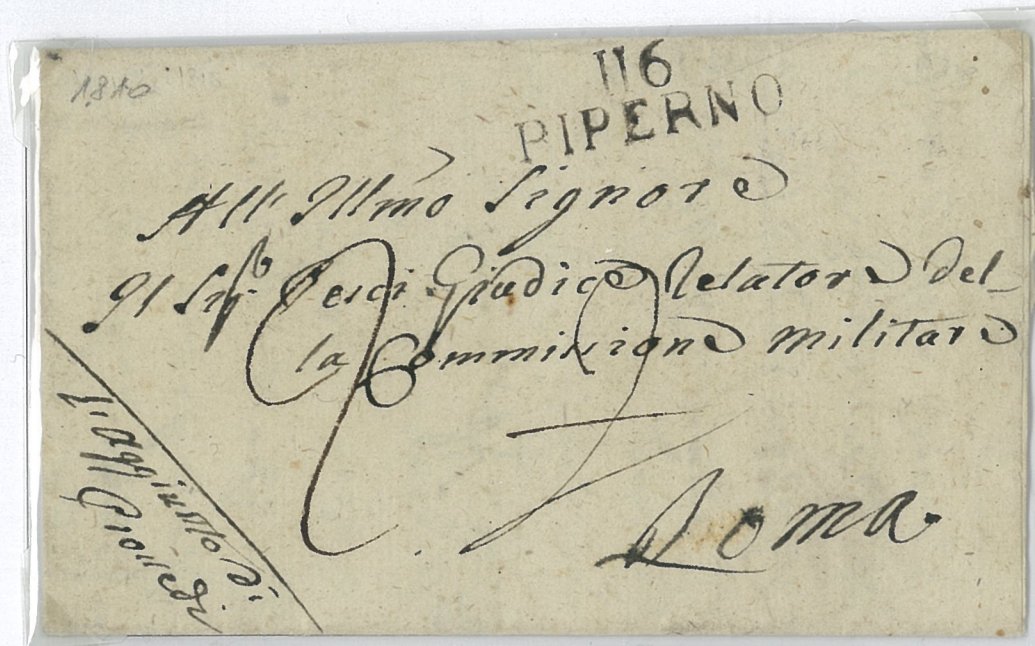 1810
116
PIPERNO
All' Illmo Signore
Il Sigr Pesci Giudice Relatore del-
la Commissione Militare
Roma
L'Aggiunto di